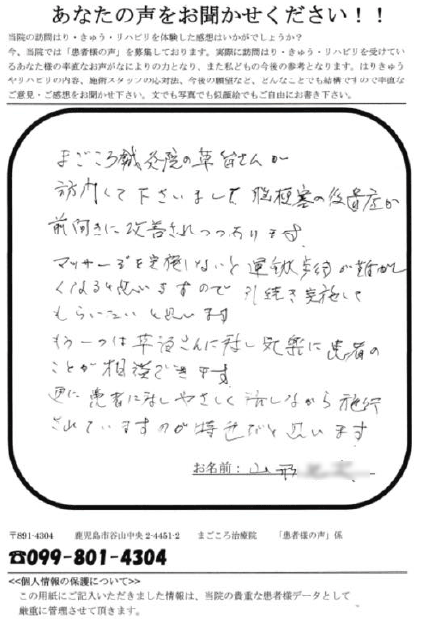 あなたの声をお聞かせください！！
当院の訪問はり・きゅう・リハビリを体験した感想はいかがでしょうか？
今、当院では「患者様の声」を募集しております。実際に訪問はり・きゅう・リハビリを受けてい
るあなた様の率直なお声がなによりの力となり、また私どもの今後の参考となります。はりきゅう
やリハビリの内容、施術スタッフの応対法、今後の願望など、どんなことでも結構ですので率直な
ご意見・ご感想をお聞かせ下さい。文でも写真でも似顔絵でもご自由にお書き下さい。
まごころ鍼灸院の草留さんが
訪問して下さいまして 脳梗塞の後遺症が
前向きに改善されつつあります
マッサージを実施しないと運動歩行が難かし
くなると思いますので 引続き実施して
もらいたいと思います
もう一つは草留さんに対し気楽に患者の
ことが相談できます
更に患者に対しやさしく話しながら施行
されていますのが特色だと思います
お名前：山形
〒891-4304 鹿児島市谷山中央2-4451-2 まごころ治療院 「患者様の声」係
☎099-801-4304
<<個人情報の保護について>>
この用紙にご記入いただきました情報は、当院の貴重な患者様データとして
厳重に管理させて頂きます。